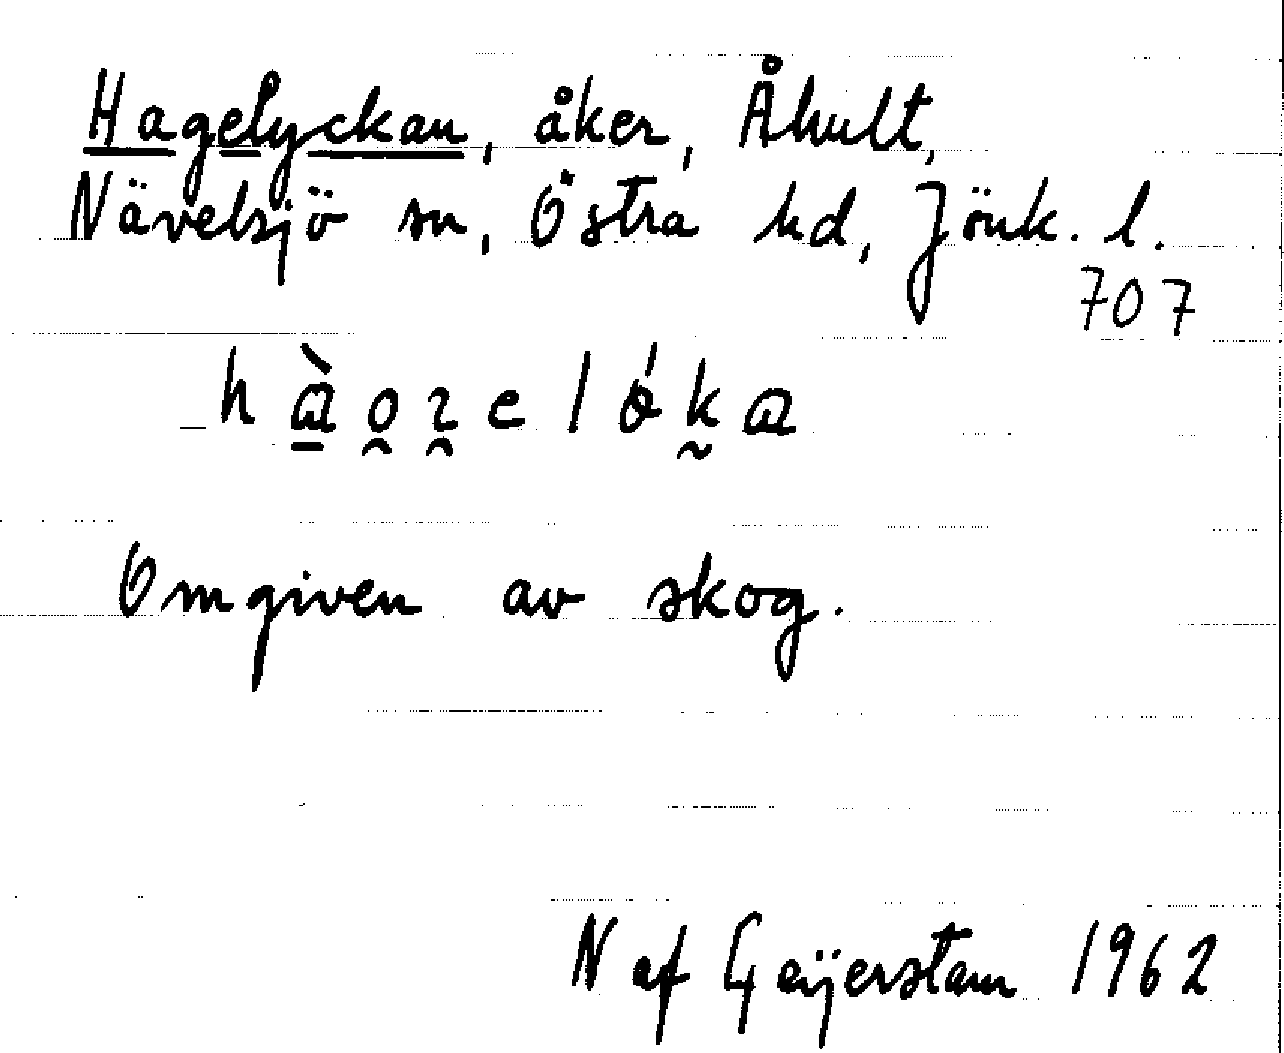 Hagelyckan, åker, Åhult,
Nävelsjö sn, Östra hd, Jönk. l.
707
Omgiven av skog.
N af Geijerstam 1962